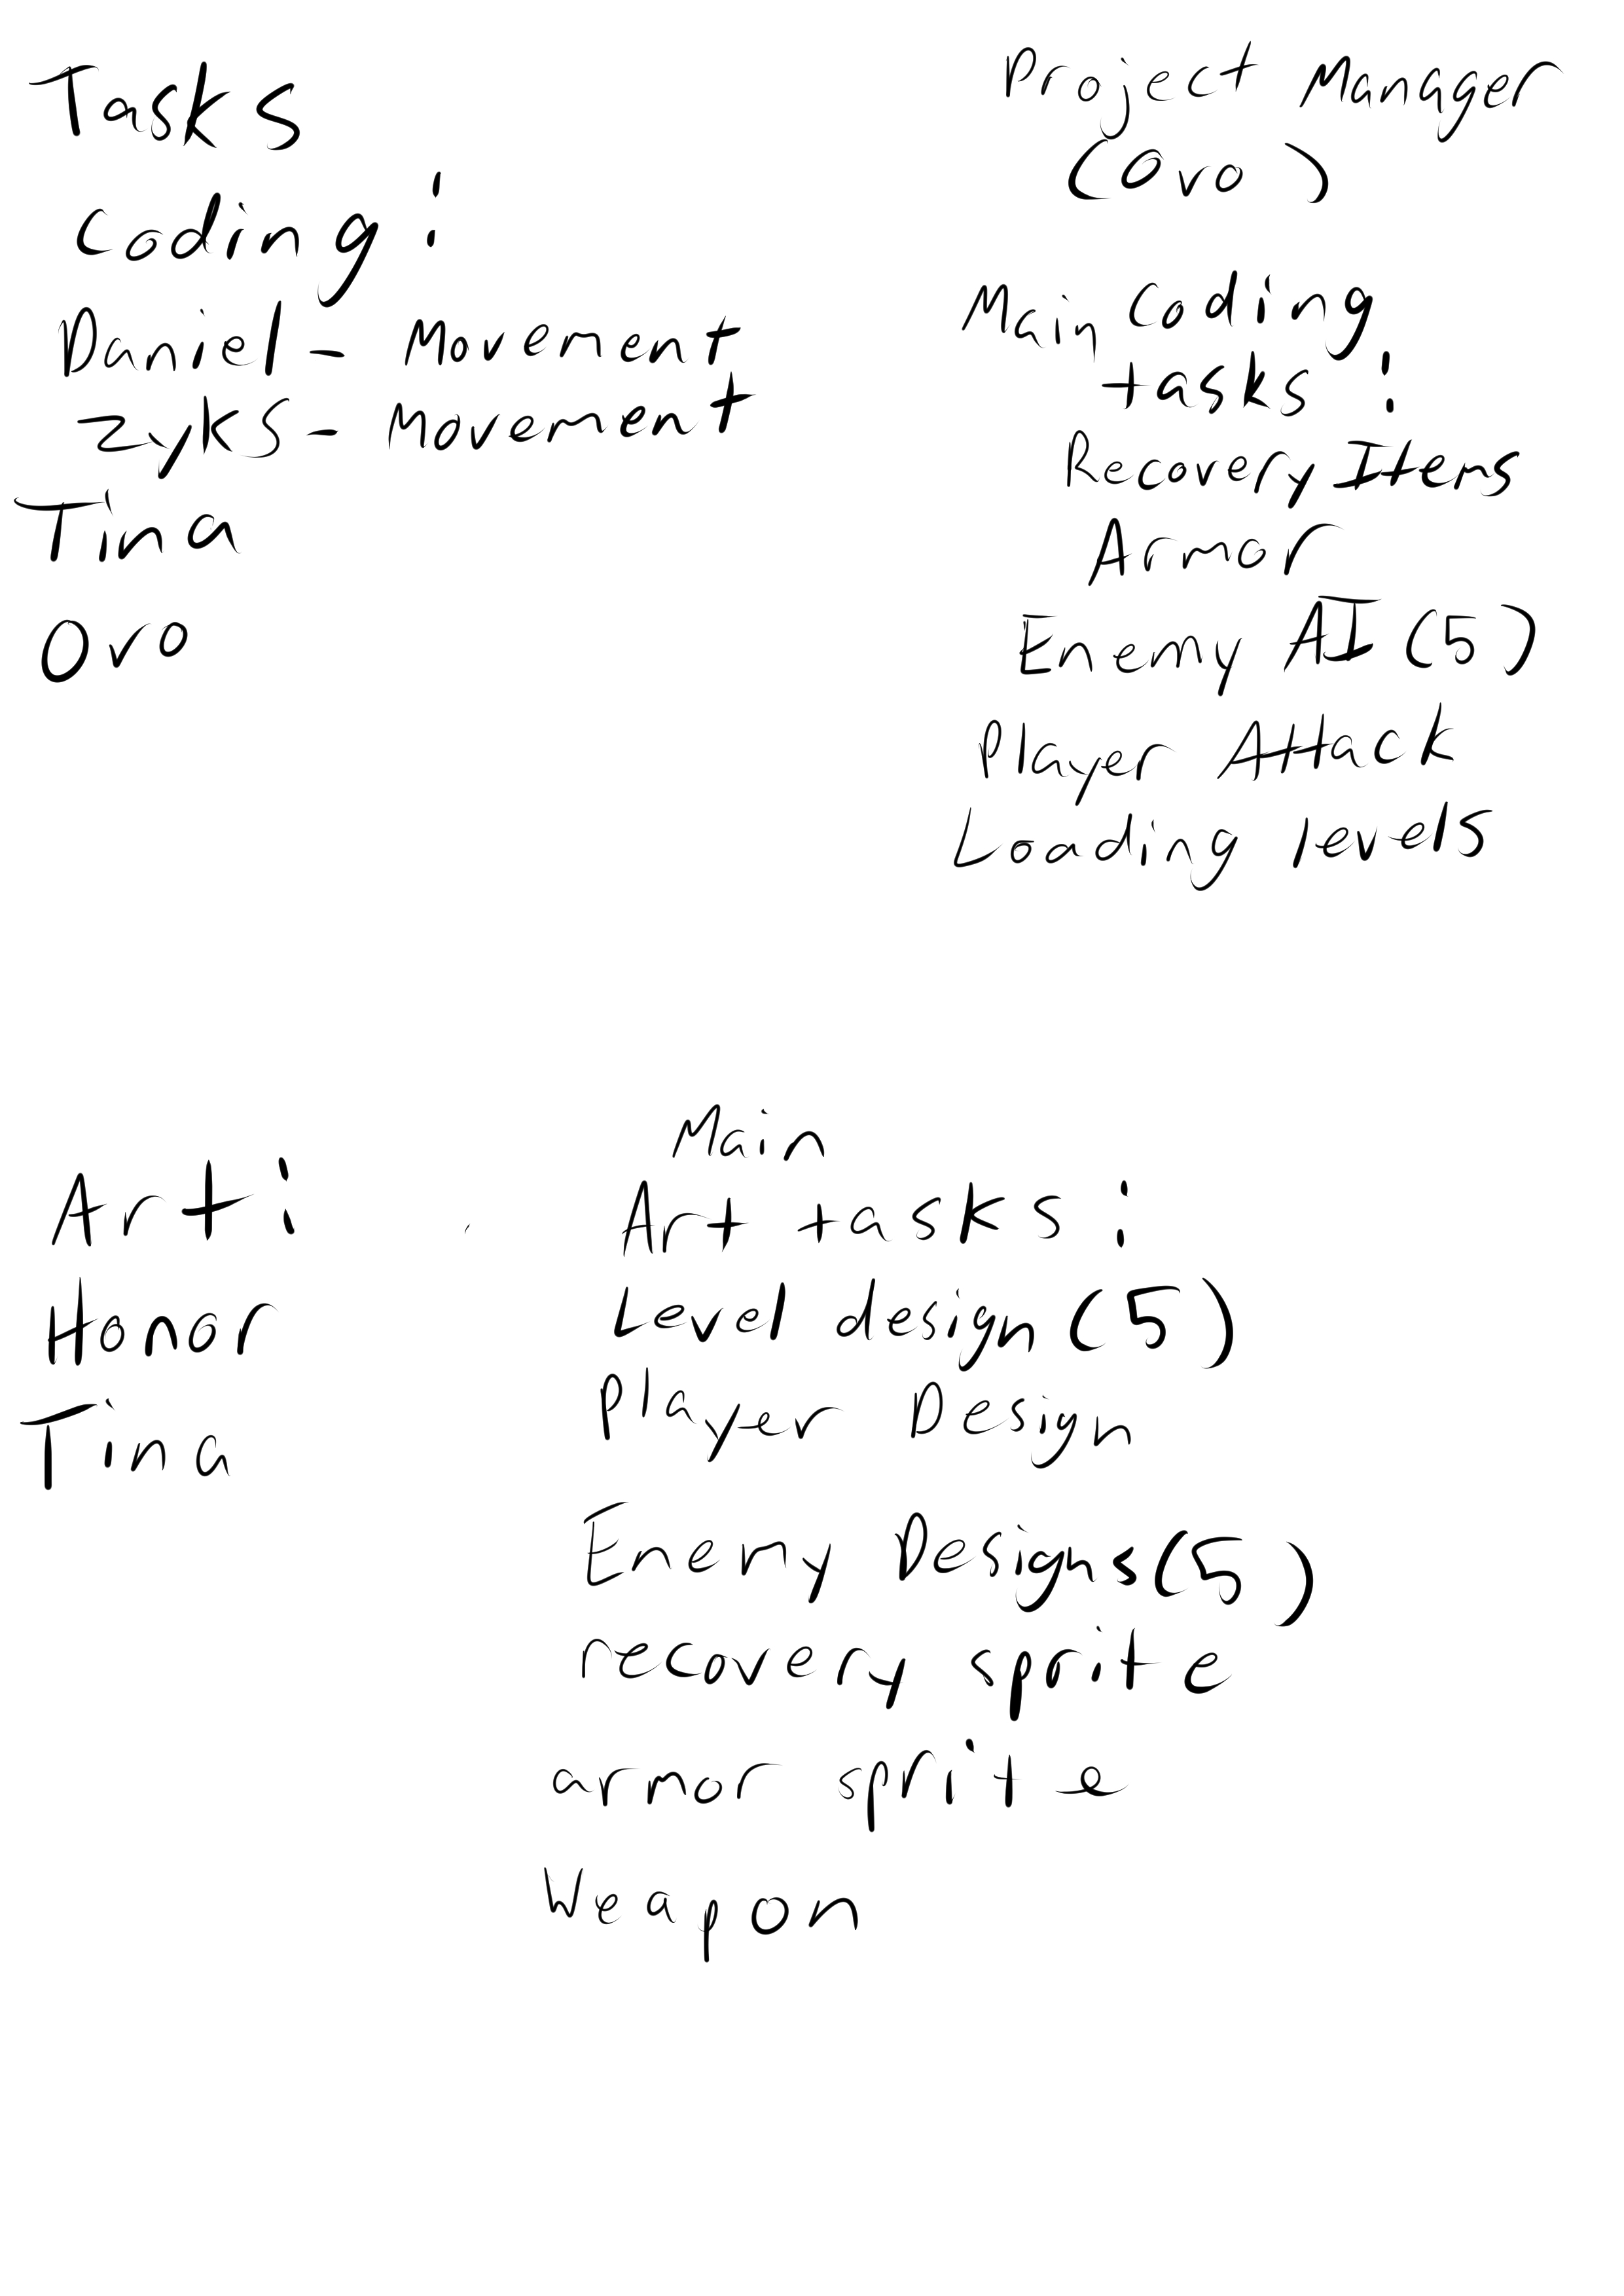 Tasks
Coding:
Daniel - Movement
Zyks - Movement
Tina
Oro
Project Manager
(Oro)
Main Coding
tasks:
Recovery Items
Armor
Enemy AI (5)
Player Attack
Loading levels
Art:
Honor
Tina
Main
Art tasks:
Level design (5)
Player Design
Enemy Designs (5)
recovery sprite
armor sprite
Weapon